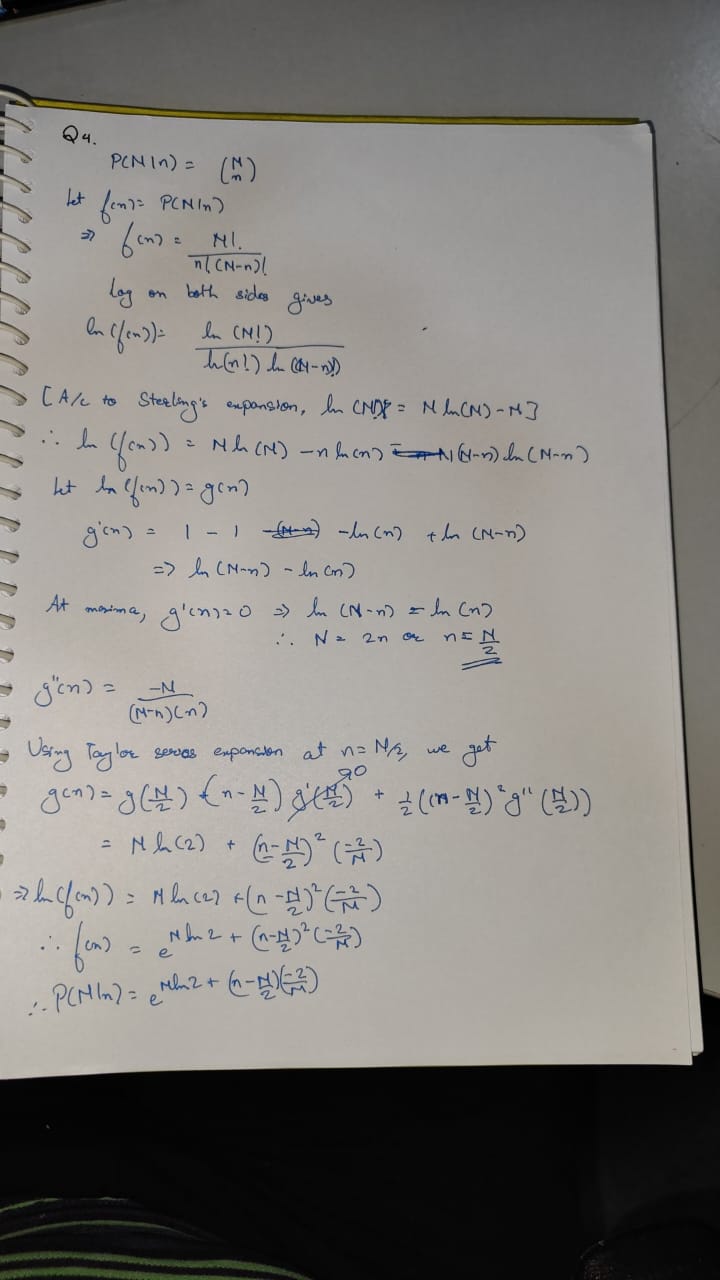 Q4.
P(N|n) = (N n)
Let f(n) = P(N|n)
⇒ f(n) = N! / n!(N-n)!
Log on both sides gives
ln(f(n)) = ln(N!) / ln(n!) ln((N-n)!)
[A/c to Sterling's expansion, ln(N!) = N ln(N) - N]
∴ ln(f(n)) = N ln(N) - n ln(n) - (N-n) ln(N-n)
Let ln(f(n)) = g(n)
g'(n) = 1 - 1 - ln(n) + ln(N-n)
=> ln(N-n) - ln(n)
At maxima, g'(n)=0 ⇒ ln(N-n) = ln(n)
∴ N = 2n or n = N/2
g''(n) = -N / (N-n)(n)
Using Taylor series expansion at n = N/2, we get
g(n) = g(N/2) + (n - N/2) g'(N/2) → 0 + 1/2((n - N/2)² g''(N/2))
= N ln(2) + (n - N/2)² (-2/N)
⇒ ln(f(n)) = N ln(2) + (n - N/2)² (-2/N)
∴ f(n) = e^(N ln 2 + (n - N/2)² (-2/N))
∴ P(N|n) = e^(N ln 2 + (n - N/2)(-2/N))